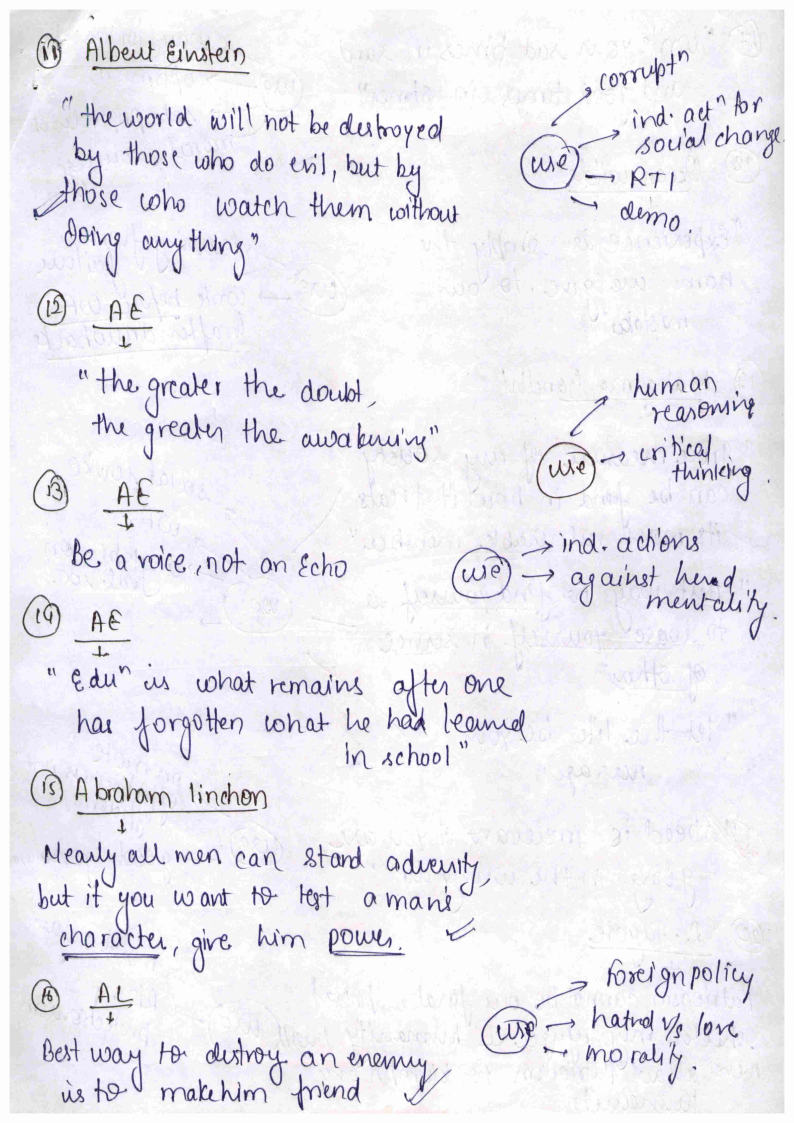 (11) Albert Einstein
"the world will not be destroyed
by those who do evil, but by
those who watch them without
doing anything"
use
→ corruptⁿ
→ ind. actⁿ for
social change.
→ RTI
→ demo.
(12) AE
"the greater the doubt,
the greater the awakening"
use
→ human
reasoning
→ critical
thinking.
(13) AE
Be a voice, not an Echo
use
→ ind. actions
→ against herd
mentality.
(14) AE
"Eduⁿ is what remains after one
has forgotten what he had learned
in school"
(15) Abraham linchon
Nearly all men can stand adversity,
but if you want to test a man's
character, give him power.
(16) AL
Best way to distroy an enemy
is to make him friend
use
→ foreign policy
→ hatred v/s love
→ morality.